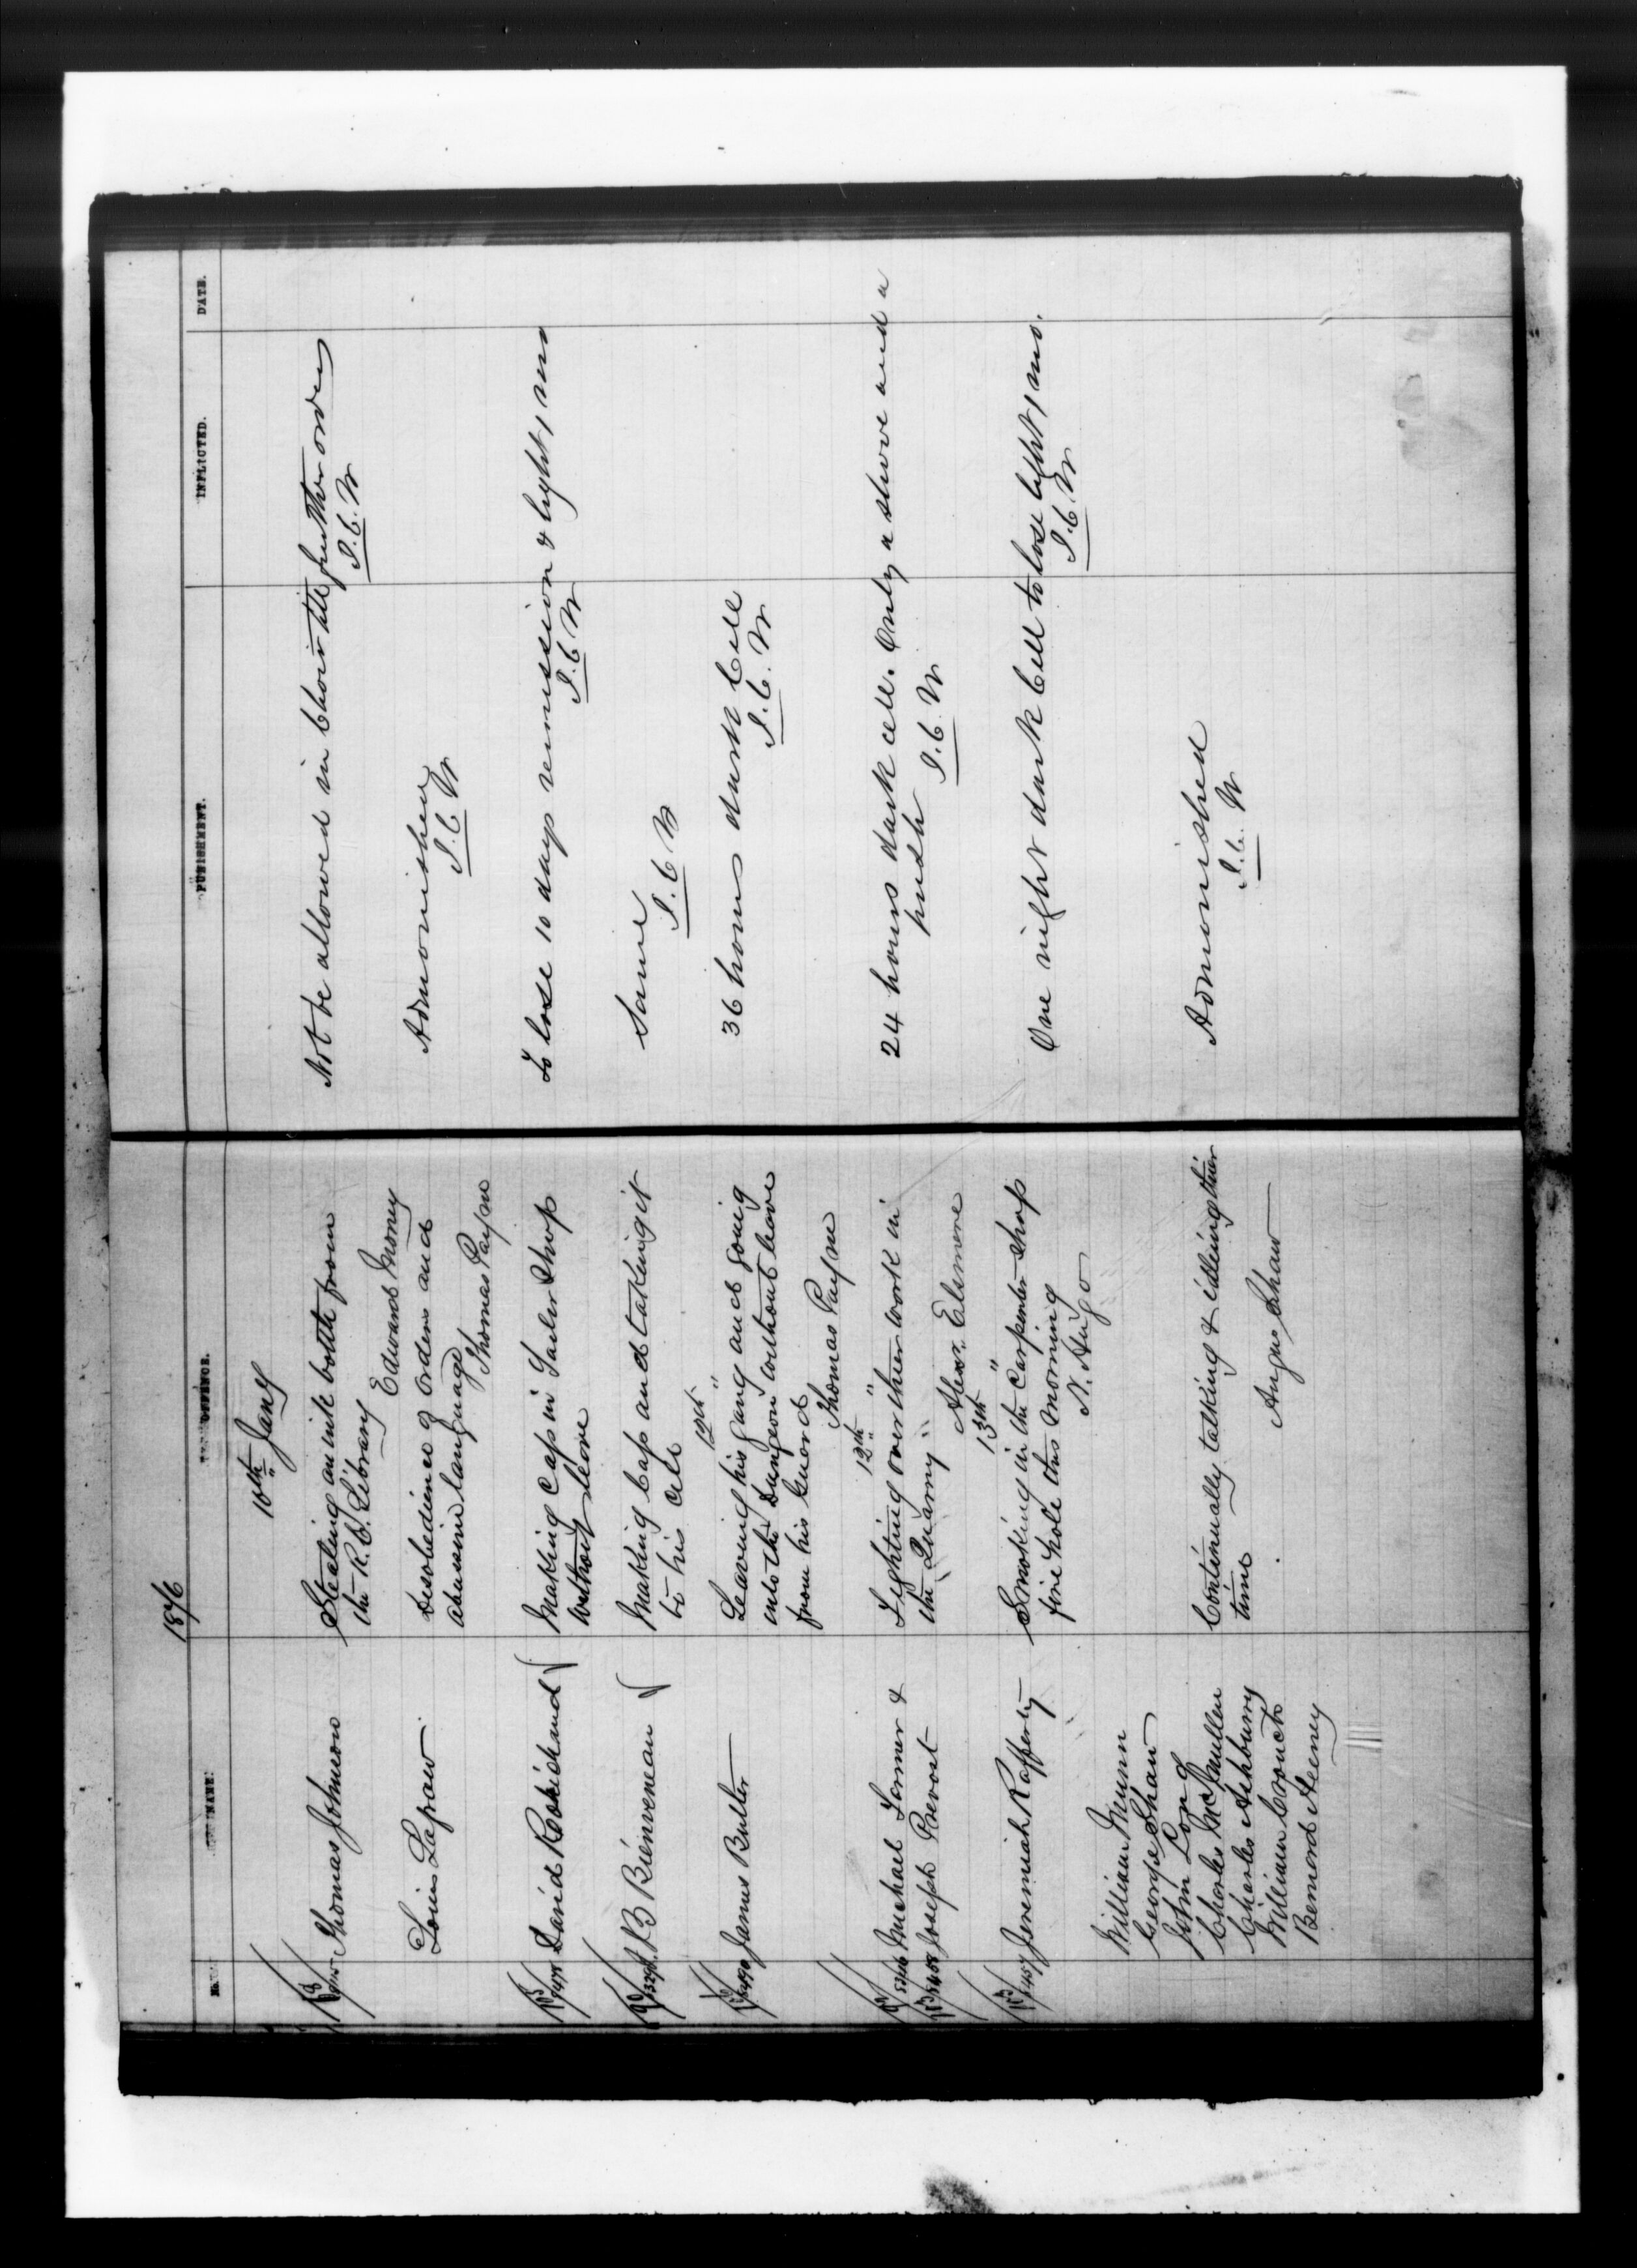 1876
OFFENCE.
PUNISHMENT.
INFLICTED.
DATE.
10th Jany
Thomas Johnson
Stealing an ink bottle from
the R.C. Library
Edward Mooney
Not be allowed in Choir till further orders
Louis Lapraw
Disobedience of orders and
abusive language
Thomas Payne
Admonished
David Robichaud
Making Cap in Tailor Shop
without leave
To lose 10 days remission & light 1 mo
B Bienveneau
Making Cap and taking it
to his cell
Same
12th "
James Butler
Leaving his gang and going
into the Dungeon without leave
from his Guard
Thomas Payne
36 hours dark Cell
12th "
Michael Larmer &
Joseph Prevost
Fighting over their work in
the Quarry
Alexr. Elsmere
24 hours dark cell. Only a shove and a
push
13th "
Jeremiah Rafferty
Smoking in the Carpenter Shop
fire hole this morning
N. Hugo
One night dark Cell to lose light 1 mo.
William Munn
George Shaw
John Long
Charles McMullen
Charles Ashburry
William Crouch
Bernard Heeney
Continually talking & idling their
time
Angus Shaw
Admonished